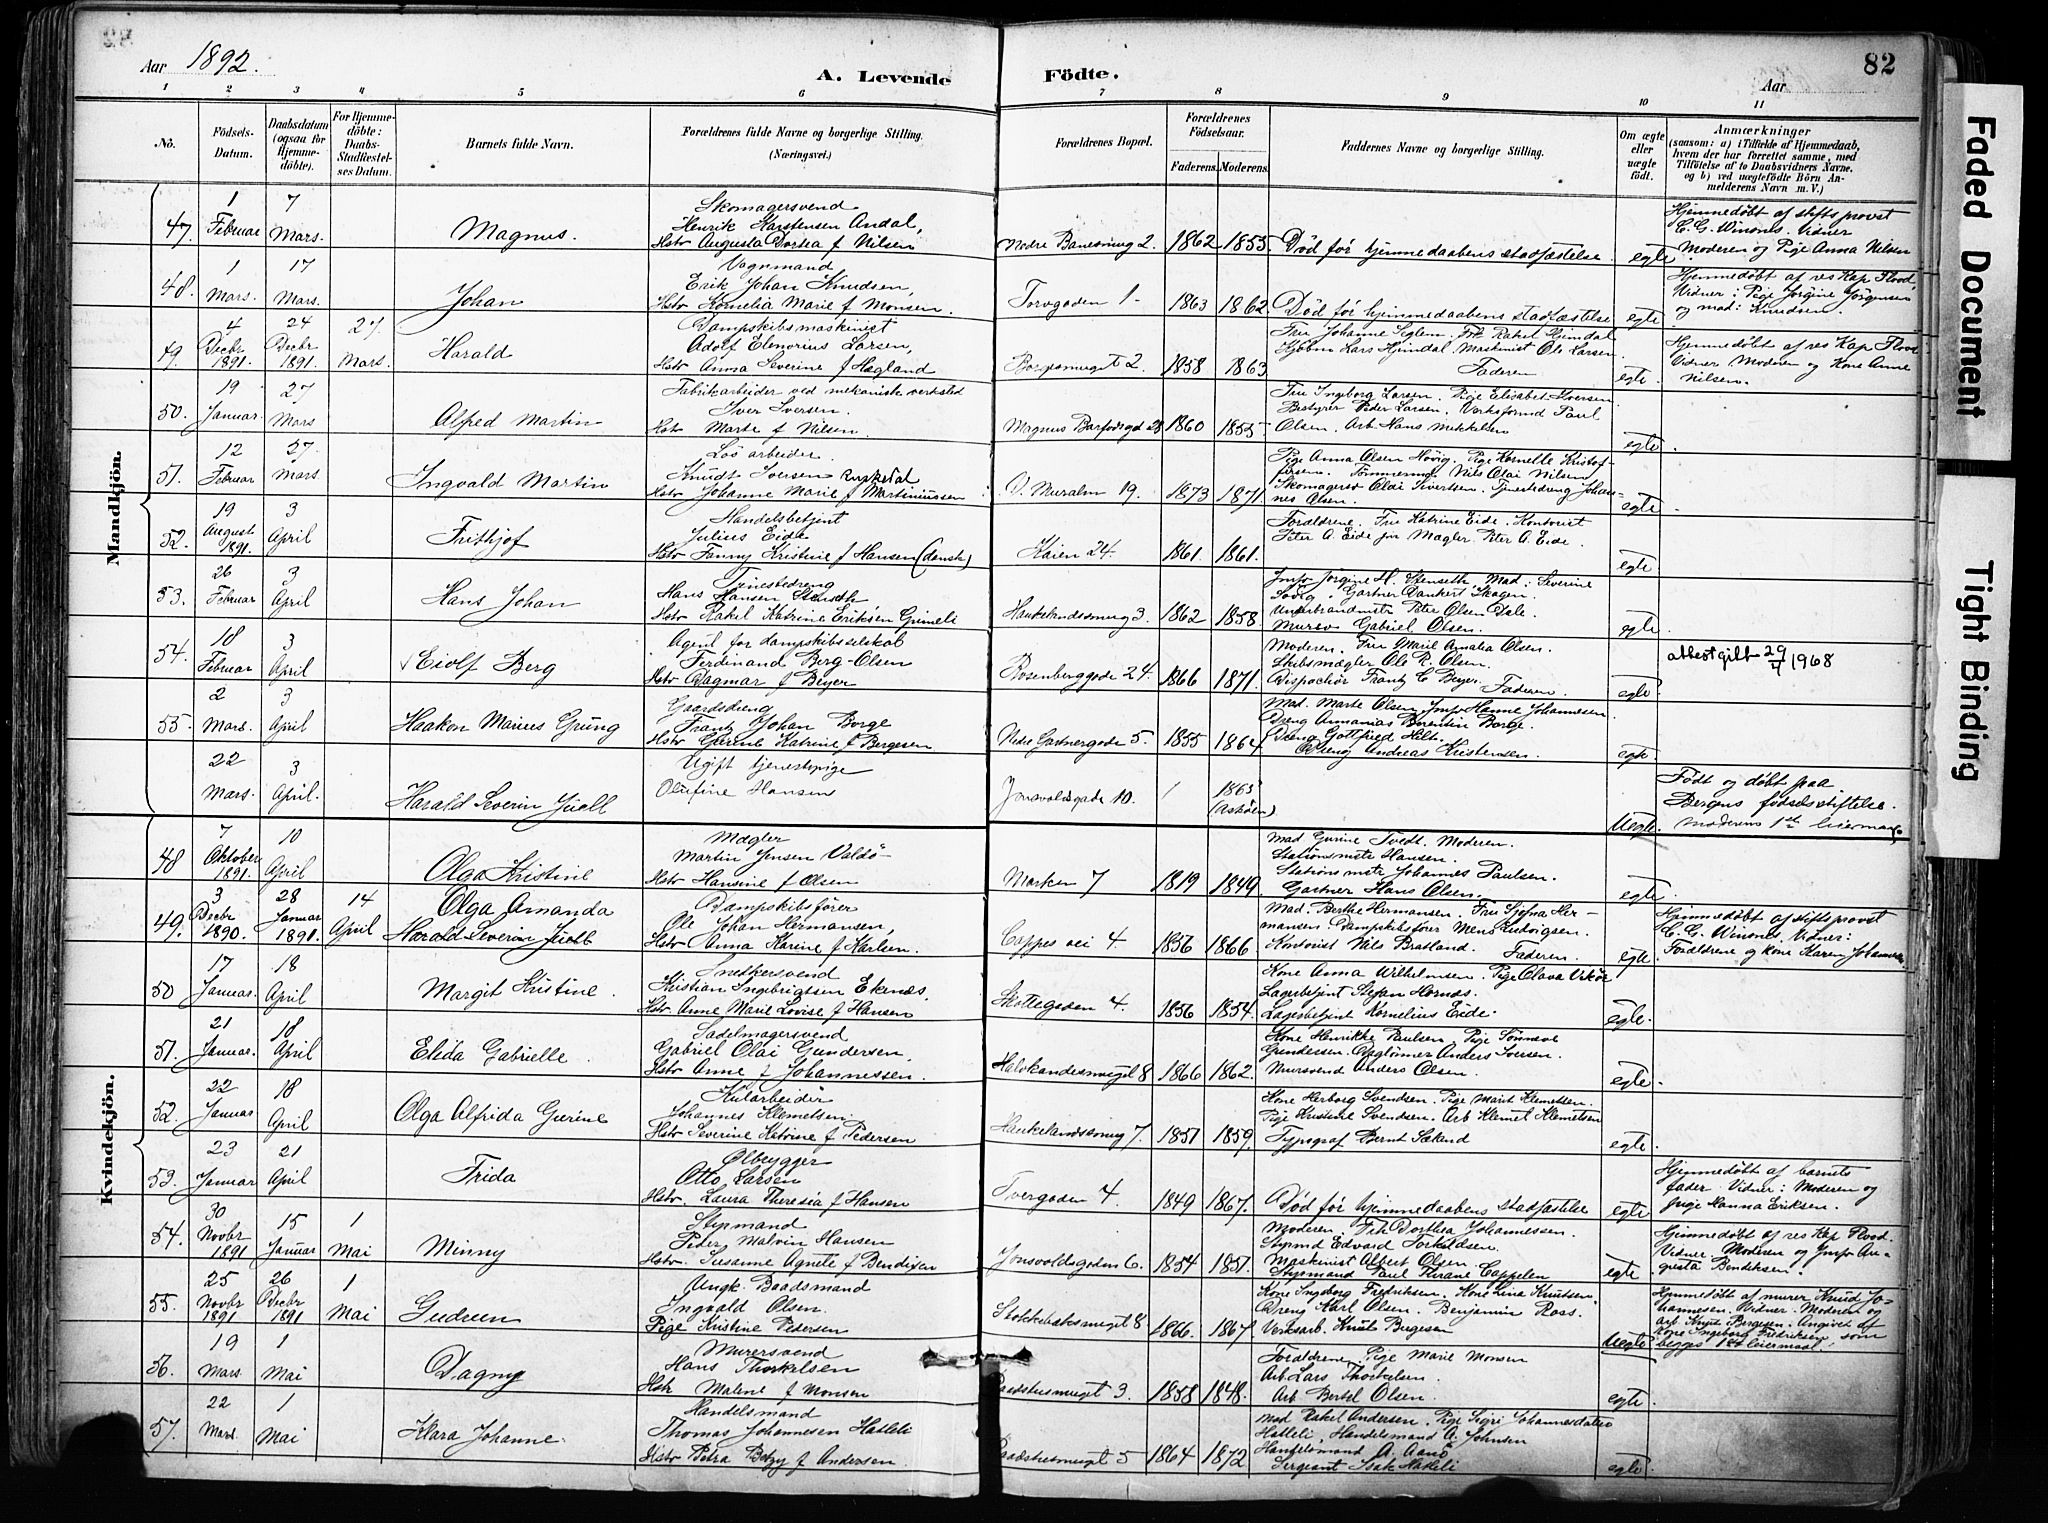 Aar 1892.
A. Levende Födte.
Aar
82
1 2 3 4 5 6 7 8 9 10 11
No.
Födsels-Datum.
Daabsdatum (ogsaa for Hjemmedöbte).
For Hjemmedöbte: Daabs-Stadfestelses Datum.
Barnets fulde Navn.
Forældrenes fulde Navne og borgerlige Stilling. (Næringsvei.)
Forældrenes Bopæl.
Forældrenes Födselsaar.
Faderens. Moderens.
Faddernes Navne og borgerlige Stilling.
Om ægte eller uægte födt.
Anmærkninger (saasom: a) i Tilfælde af Hjemmedaab, hvem der har forrettet samme, med Tilföielse af to Daabsvidners Navne, og b) ved uægtefödte Börn Anmelderens Navn m. V.)
Mandkjön.
47. 1 Februar 7 Mars. Magnus. Skomagersvend
Henrik Karstensen Andal,
Hstr Augusta Dortea f Nilsen
Nedre Banesmug 2. 1862 1855. Död før hjemmedaabens stadfæstelse. egte
Hjemmedøbt af stiftsprovst
C. G. Winsnes. Vidner
Moderen og Pige Anna Nilsen
48. 1 Mars. 17 Mars. Johan Vognmand
Erik Johan Knudsen,
Hstr Kornelia Marie f Monsen.
Torvgaden 1. 1863 1862. Död før hjemmedaabens stadfæstelse egte
Hjemmedøbt af res Kap Flood
Vidner: Pige Jørgine Jørgensen
og mad: Knudsen.
49. 4 Decbr 1891. 24 Decbr 1891. 27 Mars. Harald Dampskibsmaskinist
Adolf Elenorius Larsen,
Hstr Anna Severine f Hægland
2. 1858 1863 Fru Johanne Seglem. Frk Rakel Hjimdal
Kjøbm Lars Hjimdal. Maskinist Ole Larsen.
Faderen egte.
Hjemmedøbt af res Kap Flood
Vidner Moderen og Kone Anne
Nilsen.
50. 19 Januar. 27 Mars Alfred Martin Fabrikarbeider ved mekanisk verksted
Iver Iversen.
Hstr Marte f Nilsen.
Magnus Barfodsgd 28 1860 1855 Fru Ingeborg Larsen. Pige Elisabet Iversen
Bestyrer Peder Larsen. Verksformd Paul
Olsen. Arb. Hans Mikkelsen egte.
51. 12 Februar 27. Mars. Ingvald Martin Løsarbeider.
Knudt Iversen
Hstr Johanne Marie f Martiniussen
D. Muralm 19. 1873 1871. Pige Anna Olsen Hovig. Pige Kornelle Kristof-
fersen. Tømmermd Nils Olai Nilsen.
Skomagersv Olai Sivertsen. Tjenestedreng Johan-
nes Olsen. egte
52. 19 August 1891. 3 April Frithjof Handelsbetjent
Julius Eide
Hstr Fanny Kristine f Hansen (dansk)
Kaien 24. 1861. 1861. Forældrene. Fru Katrine Eide. Kontorist
Peter A. Eide jnr Mægler Peter A. Eide. egte
53. 26 Februar 3 April Hans Johan Tjenestedreng
Hans Hansen Stenseth
Hstr Rakel Katrine Eriksen Grimeli
Haukelandsmug 3. 1862 1858. Jmfr Jørgine H. Stenseth. Mad: Severine
Gartner Dankert Skagen.
Underbrandmstr Peter Olsen Dale.
Mursv Gabriel Olsen. egte
54. 18 Februar 3 April Eiolf Berg Agent for dampskibsselskab
Ferdinand Berg-Olsen
Hstr Dagmar f Beyer
Rosenberggade 24. 1866 1871. Moderen. Fru Marie Amalia Olsen.
Skibsmægler Ole R. Olsen.
Dispachør Frantz C Beyer. Faderen. egte
attest gitt 29/7 1968
55. 2 Mars. 3 April Haakon Marius Grung Gaardsdreng
Frantz Johan Borge
Hstr Gurine Katrine f Bergesen
Nedre Gartnergade 5. 1855 1864 Mad. Marte Olsen. Jmfr Hanne Johannesen.
Dreng Annanias Berentin Borge.
Dreng Gottfred Hilt.
Dreng Andreas Kristensen. egte
22 Mars. 3 April. Harald Severin Juell Ugift tjenestepige
Olufine Hansen
Jonsvoldsgade 10. / 1865 (Askøen) Uegte.
Født og døbt paa
Bergens fødselsstiftelse.
Moderens 1ste leiermaal
Kvindekjön.
48 7 Oktober 1891. 10 April Olga Kristine Mægler
Martin Jensen Valdö
Hstr Hansine f Olsen
Marken 7 1819 1849. Mad Gurine Tvedt. Moderen.
Stationsmstr Hansen.
Stationsmstr Johannes Paulsen.
Gartner Hans Olsen. egte
49. 3 Decbr 1890. 28 Januar 1891. 14 April Olga Amanda
Harald Severin Juell
Dampskibsfører
Ole Johan Hermansen,
Hstr Anna Karine f Karlsen.
Cappes vei 4. 1856 1866 Mad. Berthe Hermansen. Fru Sjøfna Her-
mansen. Dampskibsfører Mens Ludvigsen.
Kontorist Nils Bratland. Faderen. egte
Hjemmedøbt af stiftsprovst
C. G. Winsnes. Vidner:
Forældrene og kone Karen Johannesen.
50 17 Januar. 18 April Margit Kristine. Snedkersvend
Kristian Ingebrigtsen Ekenes.
Hstr Anne Marie Lovise f Hansen
Skottegaden 4. 1856 1854. Kone Anna Wilhelmsen. Pige Olava Vikør
Lagerbetjent Stefan Hornæs.
Lagerbetjent Kornelius Eide. egte.
51. 21 Januar. 18 April Elida Gabrielle Sadelmagersvend
Gabriel Olai Gundersen,
Hstr Anne f Johannessen.
Halvkandesmuget 8 1866 1862. Kone Henrikke Paulsen. Pige Sønneve
Gundersen. Anders Iversen.
Mursvend Anders Olsen. egte
52. 22 Januar 18 April Olga Alfrida Gurine Kularbeider
Johannes Klemetsen.
Hstr Severine Katrine f Pedersen
Haukelandsmug 7. 1851 1859. Kone Herborg Svendsen. Pige Marit Klemetsen.
Pige Kristine Svendsen. Arb Klemet Klemetsen
Typograf Bernt Sælend egte
53. 23 Januar 21 April Frida Ølbrygger
Otto Larsen
Hstr. Laura Theresia f Hansen
Tvergaden 4 1849 1867. Död før hjemmedaabens stadfæstelse egte
Hjemmedøbt af barnets
fader. Vidner: Moderen og
Pige Hanna Eriksen.
54. 30 Novbr 1891 15 Januar 1 Mai Minny Styrmand
Peder Malvin Hansen
Hstr. Susanne Agnete f Bendixen
Jonsvoldsgaden 6. 1854 1851. Moderen. Frk Dorthea Johannessen.
Styrmd Edvard Torkildsen.
Maskinist Albert Olsen
Styrmand Paul Thrane Cappelen egte
Hjemmedøbt af res Kap Flood.
Vidner. Moderen og Jmfr Au-
gusta Bendiksen.
55. 25 Novbr 1891 26 Decbr 1891 1 Mai Gudrun Ungk. Baadsmand
Ingvald Olsen.
Pige Kristine Pedersen
Stokkebaksmuget 8 1866. 1867 Kone Ingeborg Fredriksen. Kone Lina Knutsen.
Dreng Karl Olsen. Benjamin Ross.
Verksarb. Knut Bergesen Uegte
Hjemmedøbt af murer Knud Jo-
hannesen. Vidner. Moderen og
Arb. Knut Bergesen. Angivet af
Kone Ingeborg Fredriksen som
begges 1ste leiermaal.
56. 19 Mars. 1 Mai Dagny Murersvend
Hans Thorkelsen
Hstr Malene f Monsen
3. 1858 1848. Forældrene. Pige Marie Monsen
Arb. Lars Thorkelsen.
Arb Bertel Olsen. egte
57. 22 Mars. 1 Mai Klara Johanne. Handelsmand
Thomas Johannesen Hatleli
Hstr Petra Betzy f Andersen.
5 1864 1872 Mad Rakel Andersen. Pige Sigri Johannesdatter
Hatleli. Handelsmand A. Johnsen
Handelsmand A. Aanö
Sergeant Isak Hatleli egte.
Faded Document
Tight Binding